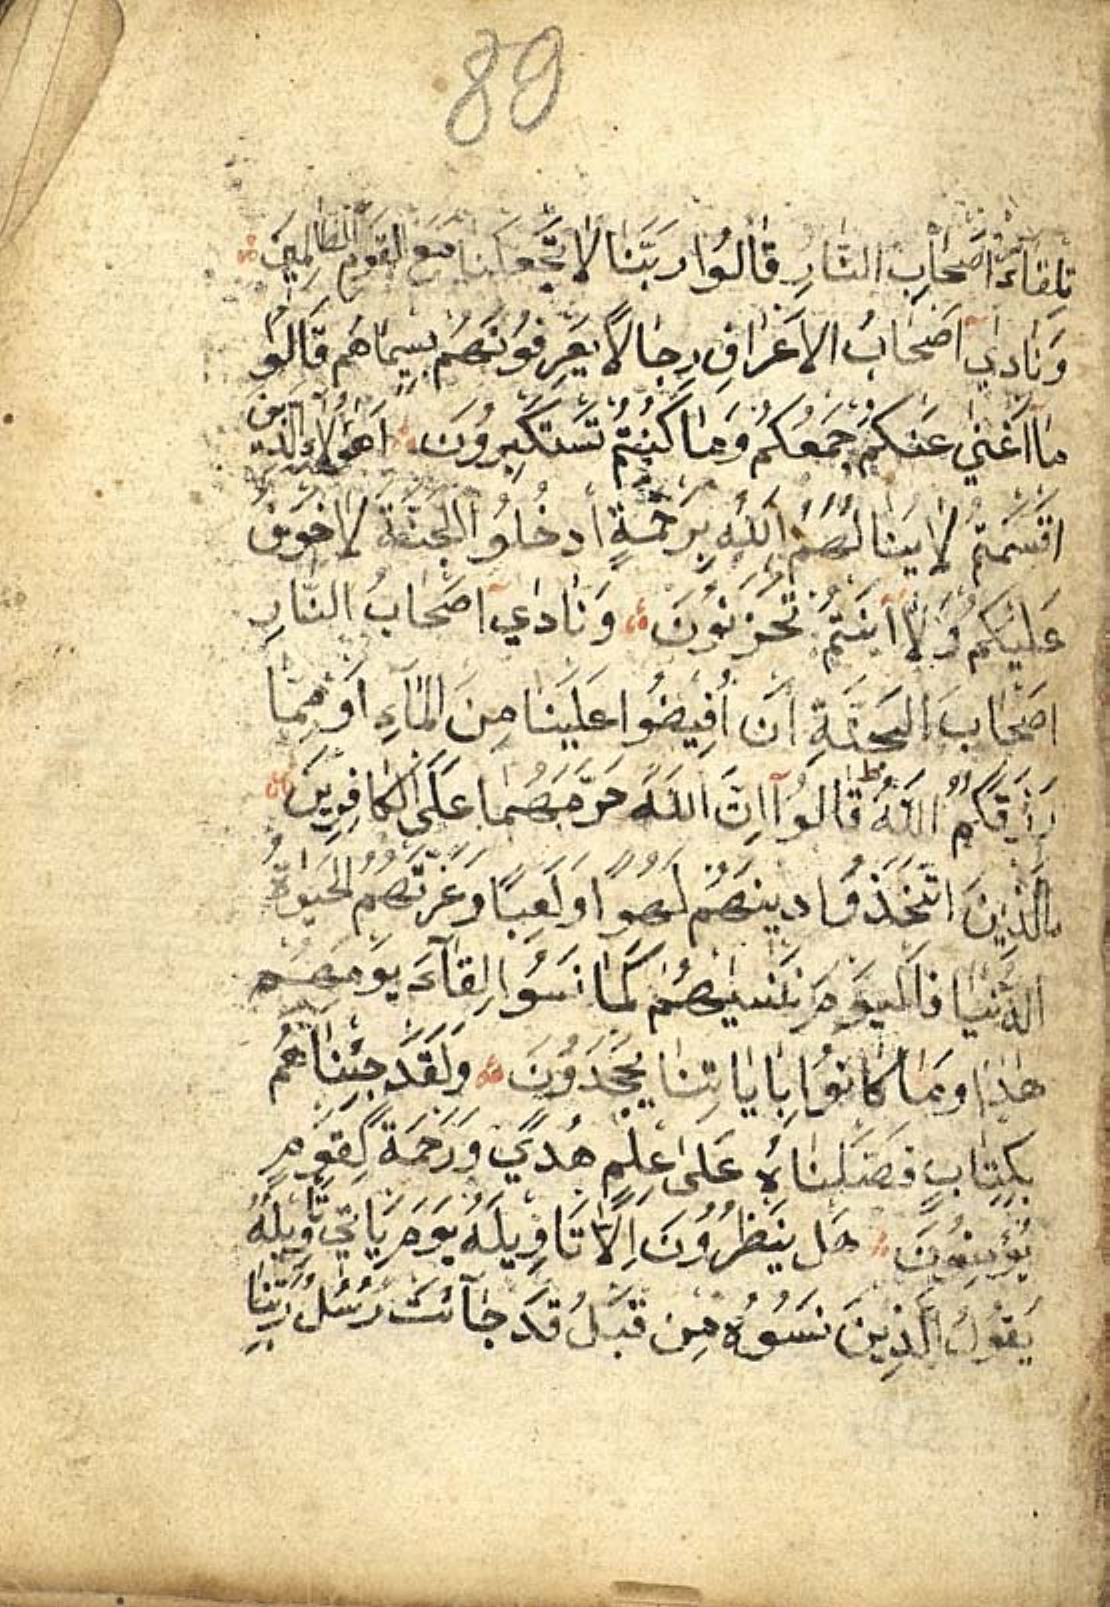 89
تِلقَاءَ اَصْحَابِ النَّارِ قَالُوا رَبَّنَا لَا تَجْعَلْنَا مَعَ القَوْمِ الظَّالِمِينَ
وَنَادٰي اَصْحَابُ الاَعْرَافِ رِجَالًا يَعْرِفُونَهُمْ بِسِيمَاهُمْ قَالُوا
مَا اَغْنٰي عَنْكُمْ جَمْعُكُمْ وَمَا كُنْتُمْ تَسْتَكْبِرُونَ اَهٰؤُلَاءِ الَّذِينَ
اَقْسَمْتُمْ لَا يَنَالُهُمُ اللّٰهُ بِرَحْمَةٍ اُدْخُلُوا الْجَنَّةَ لَا خَوْفٌ
عَلَيْكُمْ وَلَا اَنْتُمْ تَحْزَنُونَ وَنَادٰي اَصْحَابُ النَّارِ
اَصْحَابَ الْجَنَّةِ اَنْ اَفِيضُوا عَلَيْنَا مِنَ الْمَآءِ اَوْ مِمَّا
رَزَقَكُمُ اللّٰهُ ط قَالُوآ اِنَّ اللّٰهَ حَرَّمَهُمَا عَلَى الْكَافِرِينَ
اَلَّذِينَ اتَّخَذُوا دِينَهُمْ لَهْوًا وَلَعِبًا وَغَرَّتْهُمُ الْحَيٰوةُ
الدُّنْيَا فَالْيَوْمَ نَنْسٰيهُمْ كَمَا نَسُوا لِقَآءَ يَوْمِهِمْ
هٰذَا وَمَا كَانُوا بِاٰيَاتِنَا يَجْحَدُونَ وَلَقَدْ جِئْنَاهُمْ
بِكِتَابٍ فَصَّلْنَاهُ عَلٰى عِلْمٍ هُدًي وَرَحْمَةً لِقَوْمٍ
يُؤْمِنُونَ هَلْ يَنْظُرُونَ اِلَّا تَاْوِيلَهُ يَوْمَ يَاْتِي تَاْوِيلُهُ
يَقُولُ الَّذِينَ نَسُوهُ مِنْ قَبْلُ قَدْ جَآئَتْ رُسُلُ رَبِّنَا